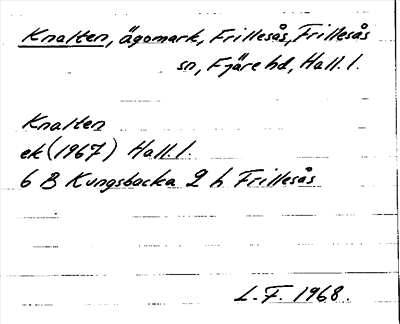 Knalten, ägomark, Frillesås, Frillesås
sn, Fjäre hd, Hall. l.
Knalten
ek (1967) Hall. l.
6 B Kungsbacka 2 h Frillesås
L. F. 1968.